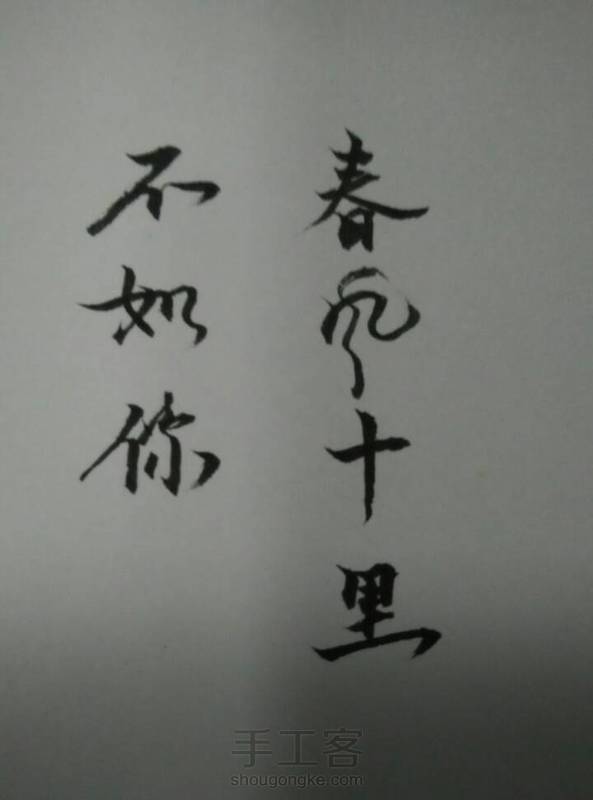 春风十里
不如你
手工客
shougongke.com